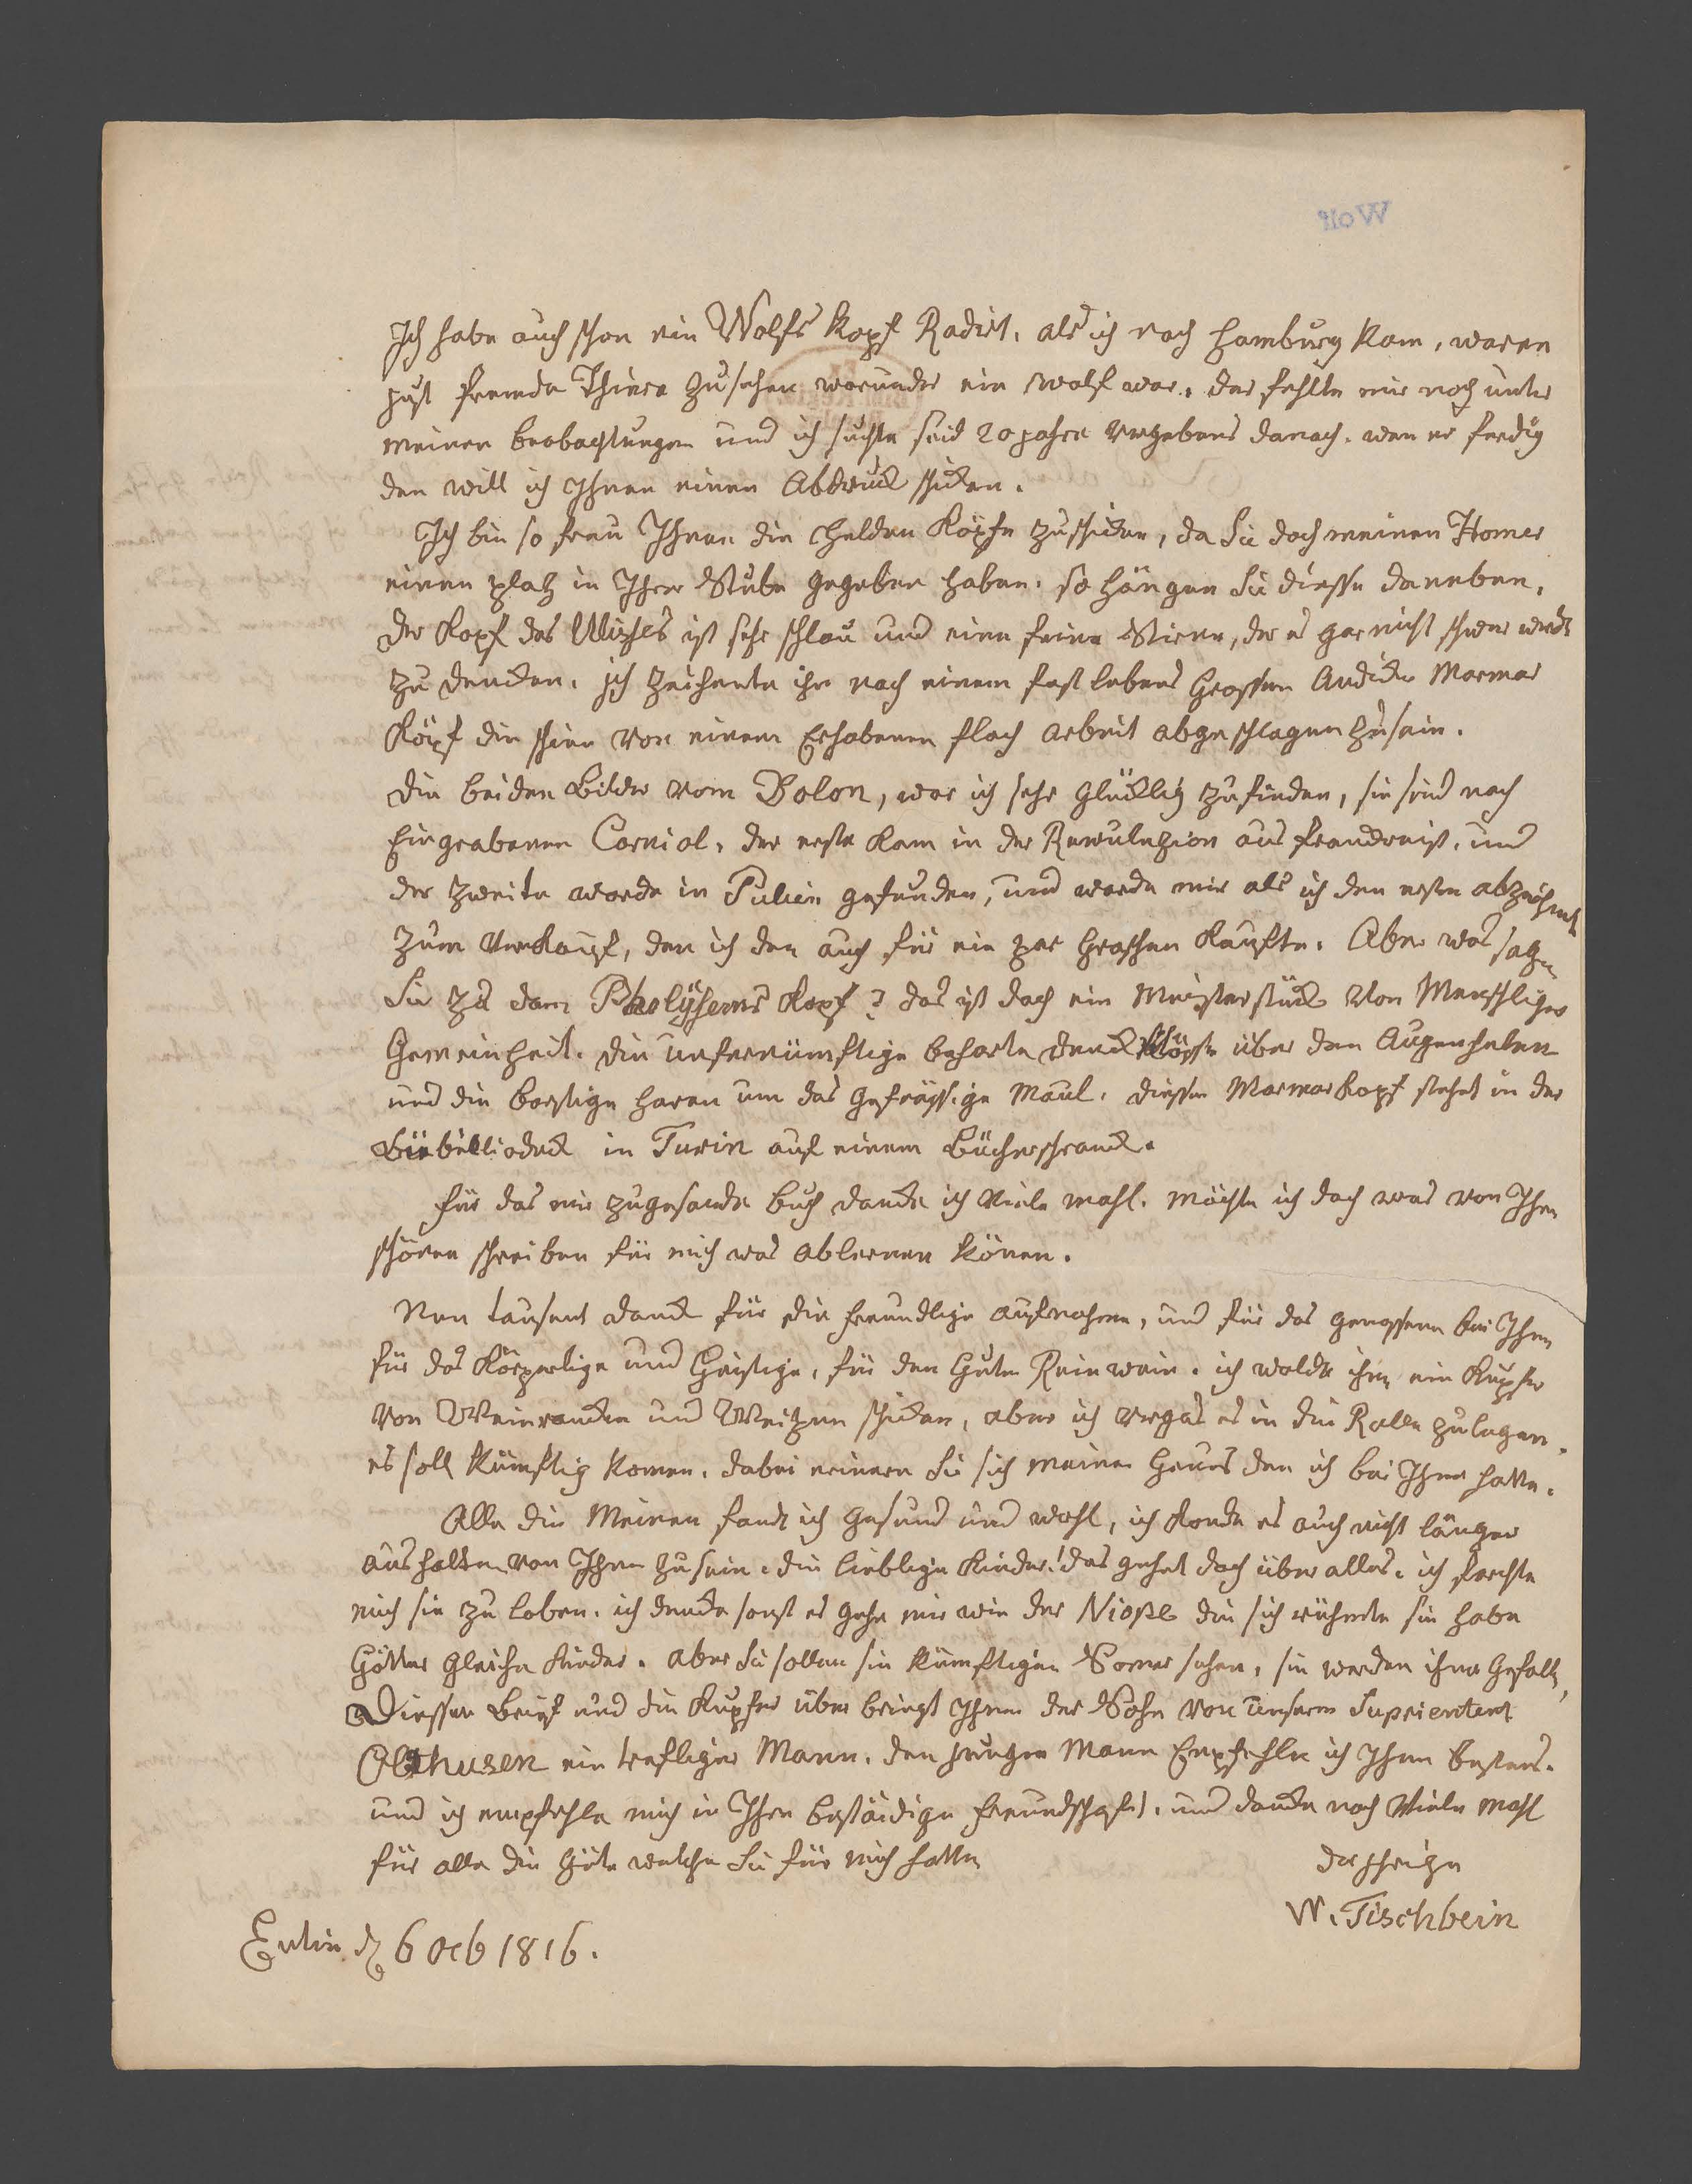 Wolf
Ich habe auch schon ein Wolfs Kopf Radirt. als ich nach Hamburg kam, waren
just fremde Thiere zu sehen worunder ein Wolf war. der fehlte mir noch unter
meinen beobachtungen und ich suchte seid 20 jahre vergebens danach. wen er ferdig
den will ich Ihnen einen Abdruck schicken.
Ich bin so freu Ihnen die Helden Köpfe zu schicken, da Sie doch meinen Homer
einen platz in Ihrer Stube gegeben haben. so hängen Sie diesse daneben.
Der Kopf des Ulisses ist sehr schlau und eine feine Stirne, der es gar nicht schwer wird
zu dencken. ich zeichente ihn nach einem fast lebens Grossen Andicke Marmor
Köpf die schien von einem Erhabenen flach arbeit abgeschlagen zu sein.
Die beiden Bilder vom Dolon, war ich sehr glücklig zu finden, sie sind nach
Eingrabenen Corniol. der erste kam in der Rewulazion aus franckreich, und
der zweite worde in Pulien gefunden, und worde mir als ich den ersten abzeichnete
zum verkauf, den ich den auch für ein par Groschen kaufte. Aber was sagen
Sie zu dem Pholyfems Kopf? das ist doch ein Meisterstück von Menschliger
Gemeinheit. die unfernümftige beharte denck Köpfe über den Augenhölen
und die borstige haren um das gefrässige Maul. diesser Marmorkopf stehet in der
Biebilliodeck in Turin auf einem Bücherschranck.
für das mir zugesande buch dancke ich viele mahl. möchte ich doch was von Ihren
schönen schreiben für mich was ablernen könen.
Nun tausent danck für die freundlige aufnahme, und für das genossene bei Ihnen
für das Körperlige und Geistige, für den Guten Reinwein. ich wolde ihnen ein Kupfer
von Weinrancken und Weitzen schicken, aber ich vergas es in die Rolle zu legen.
es soll künftig komen. dabei erinern Sie sich meiner Genus den ich bei Ihnen hatte.
Alle die Meinen fand ich gesund und wohl, ich konde es auch nicht länger
aus halten von Ihnen zu sein. die lieblige Kinder! das gehet doch über alles. ich förchte
mich sie zu loben. ich dencke sonst es gehe mir wie der Niobe die sich rühmte sie habe
Götter gleiche Kinder. aber Sie sollen sie künftigen Somer sehen, sie werden ihnen gefallen,
Diessen Brief und die Kupfer über bringt Ihnen der Sohn von unserm Suprientent
Olthusen ein trefliger Mann. den jungen Mann Empfehle ich Ihnen bestens.
und ich empfehle mich in Ihre bestäidige freundschaft, und dancke noch viele mahl
für alle die Güte welche Sie für mich hatten
der Ihrige
W. Tischbein
Eutin d 6 Ocb 1816.